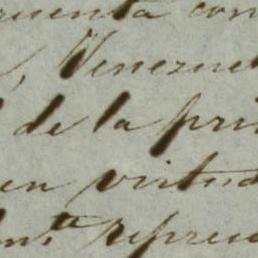 cuenta con
, Venezue
de la pri
en virtud
repres